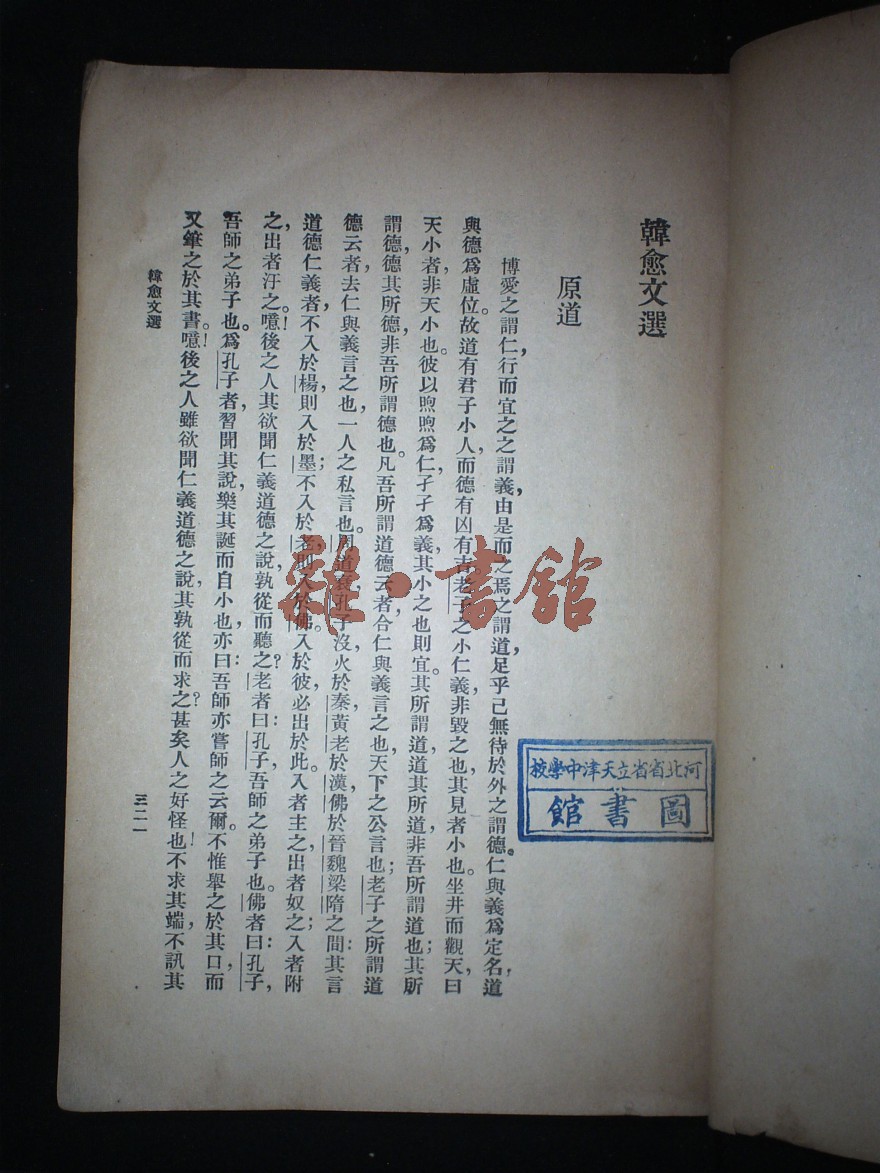 韓愈文選
原道
博愛之謂仁，行而宜之之謂義，由是而之焉之謂道，足乎己無待於外之謂德。仁與義爲定名，道
與德爲虛位。故道有君子小人，而德有凶有吉。老子之小仁義，非毀之也，其見者小也。坐井而觀天，曰
天小者，非天小也。彼以煦煦爲仁，孑孑爲義，其小之也則宜。其所謂道，道其所道，非吾所謂道也；其所
謂德，德其所德，非吾所謂德也。凡吾所謂道德云者，合仁與義言之也，天下之公言也；老子之所謂道
德云者，去仁與義言之也，一人之私言也。周道衰，孔子沒，火於秦，黃老於漢，佛於晉魏梁隋之間：其言
道德仁義者，不入於楊，則入於墨；不入於老，則入於佛。入於彼，必出於此。入者主之，出者奴之；入者附
之，出者汙之。噫！後之人其欲聞仁義道德之說，孰從而聽之？老者曰：孔子，吾師之弟子也。佛者曰：孔子，
吾師之弟子也。爲孔子者，習聞其說，樂其誕而自小也，亦曰：吾師亦嘗師之云爾。不惟舉之於其口，而
又筆之於其書。噫！後之人雖欲聞仁義道德之說，其孰從而求之？甚矣人之好怪也！不求其端，不訊其
韓愈文選
三二一
河北省省立天津中學校
圖書館
雜·書館